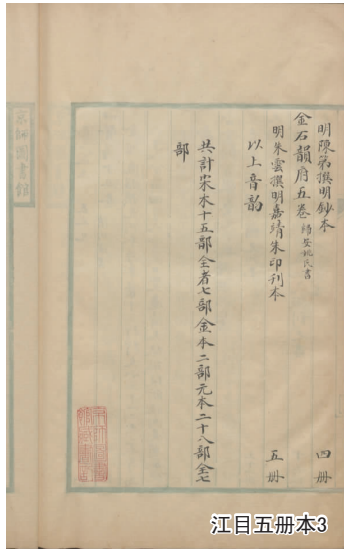 明陳第撰明鈔本 四冊
金石韻府五卷 歸安姚氏書
明朱雲撰明嘉靖朱印刊本 五冊
以上音韵
共計宋本十五部全者七部金本二部元本二十八部全七
部
京師圖書館
江目五册本3